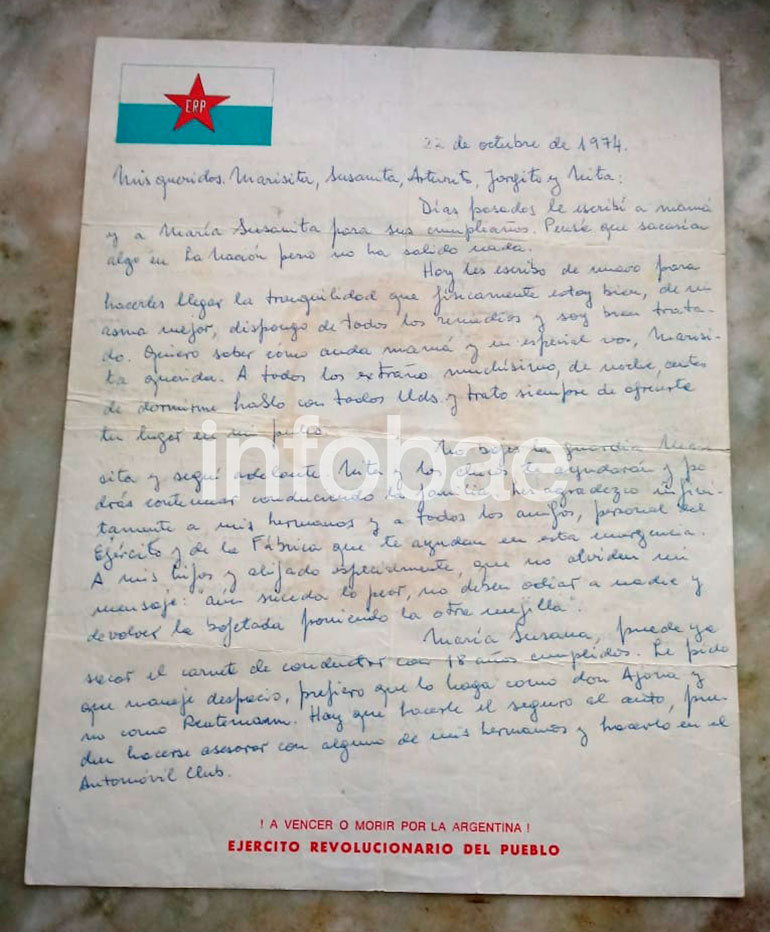 ERP
22 de octubre de 1974.
Mis queridos Marisita, Susanita, Arturito, Jorgito y Nita:
Días pasados le escribí a mamá
y a María Susanita para sus cumpleaños. Pensé que sacarían
algo en La Nación pero no ha salido nada.
Hoy les escribo de nuevo para
hacerles llegar la tranquilidad que físicamente estoy bien, de mi
asma mejor, dispongo de todos los remedios y soy bien trata-
do. Quiero saber cómo anda mamá y en especial vos, Marisi-
ta querida. A todos los extraño muchísimo, de noche, antes
de dormirme hablo con todos Uds. y trato siempre de ofrecerte
tu lugar en mi pecho.
No bajes la guardia Mari
sita y seguí adelante. Nita y los chicos te ayudarán y po
drás continuar conduciendo la familia. Les agradezco infini-
tamente a mis hermanos y a todos los amigos, personal del
Ejército y de la Fábrica que te ayudan en esta emergencia.
A mis hijos y ahijado especialmente, que no olviden mi
mensaje: "aún suceda lo peor, no deben odiar a nadie y
devolver la bofetada poniendo la otra mejilla".
María Susana, puede ya
sacar el carnet de conductor con 18 años cumplidos. Le pido
que maneje despacio, prefiero que lo haga como don Ajona y
no como Reutemann. Hay que hacerle el seguro al auto, pue-
den hacerse asesorar con alguno de mis hermanos y hacerlo en el
Automóvil Club.
infobae
! A VENCER O MORIR POR LA ARGENTINA !
EJERCITO REVOLUCIONARIO DEL PUEBLO